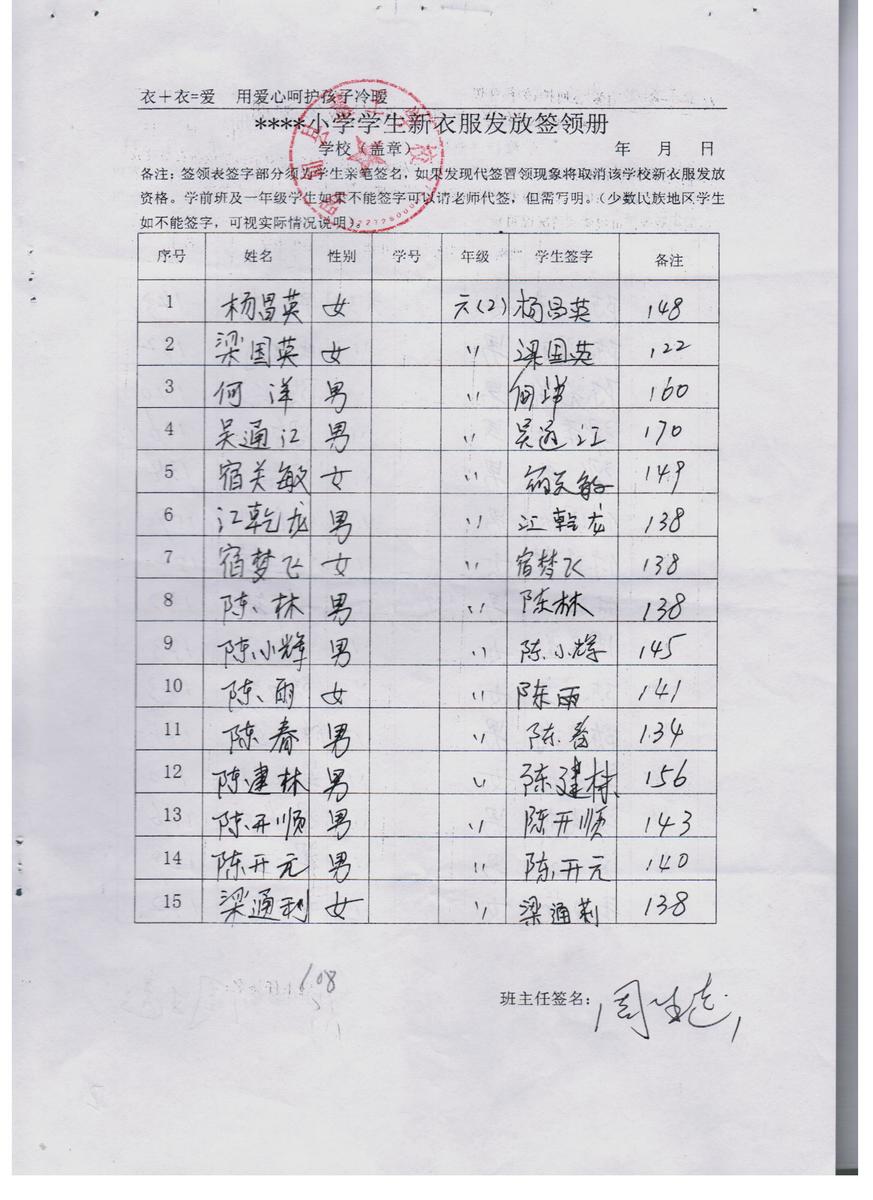 衣＋衣=爱 用爱心呵护孩子冷暖
****小学学生新衣服发放签领册
学校（盖章） 年 月 日
备注：签领表签字部分须为学生亲笔签名，如果发现代签冒领现象将取消该学校新衣服发放
资格。学前班及一年级学生如果不能签字可以请老师代签，但需写明。（少数民族地区学生
如不能签字，可视实际情况说明）。
序号 姓名 性别 学号 年级 学生签字 备注
1 杨昌英 女 六(2) 杨昌英 148
2 梁国英 女 〃 梁国英 122
3 何洋 男 〃 何洋 160
4 吴通江 男 〃 吴通江 170
5 宿关敏 女 〃 149
6 江乾龙 男 〃 江乾龙 138
7 宿梦飞 女 〃 宿梦飞 138
8 陈林 男 〃 陈林 138
9 陈小辉 男 〃 陈小辉 145
10 陈雨 女 〃 陈雨 141
11 陈春 男 〃 陈春 134
12 陈建林 男 〃 陈建林 156
13 陈开顺 男 〃 陈开顺 143
14 陈开元 男 〃 陈开元 140
15 梁通利 女 〃 梁通莉 138
108
班主任签名：周生志